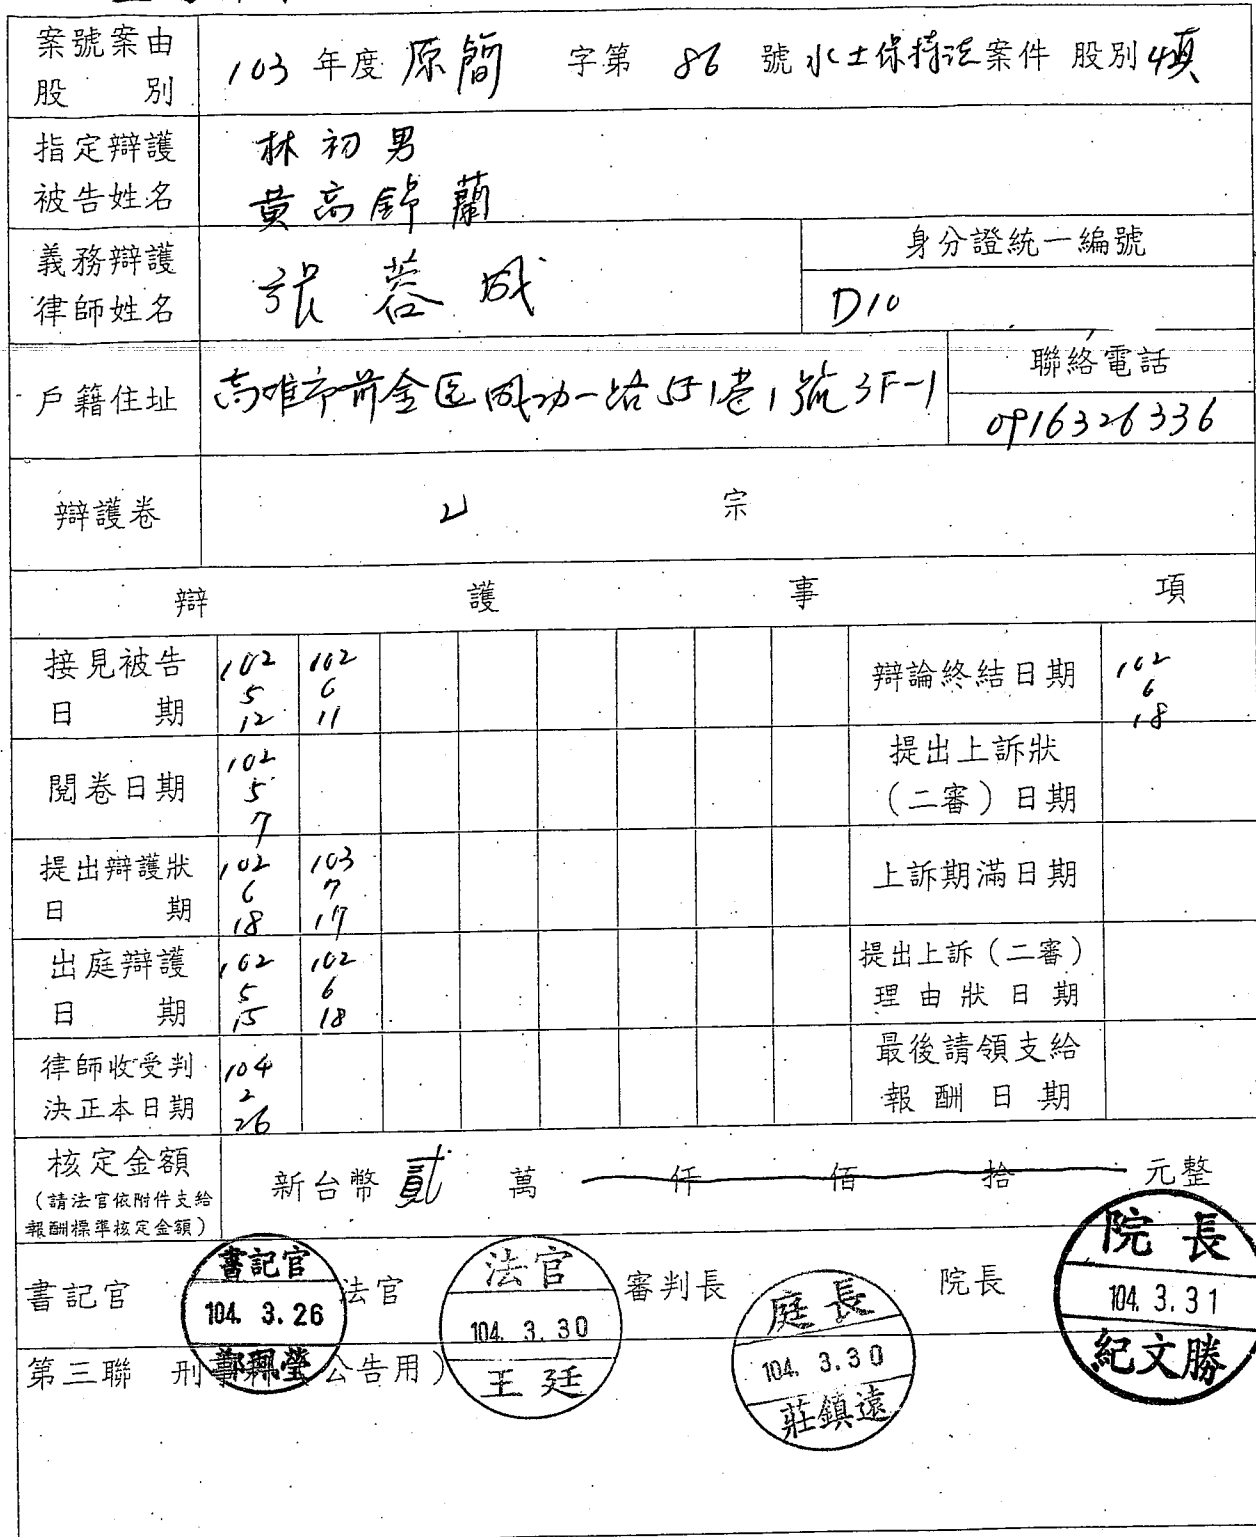 案號案由
股 別
103 年度 原簡 字第 86 號 水土保持法 案件 股別
指定辯護
被告姓名
林初男
黃高錦蘭
義務辯護
律師姓名
張蓉成
身分證統一編號
D10
戶籍住址
高雄市前金區成功一路551巷1號3F-1
聯絡電話
0916326336
辯護卷 2 宗
辯 護 事 項
接見被告
日 期
102 102
5 6
12 11
辯論終結日期
102
6
18
閱卷日期
102
5
7
提出上訴狀
(二審)日期
提出辯護狀
日 期
102 103
6 7
18 17
上訴期滿日期
出庭辯護
日 期
102 102
5 6
15 18
提出上訴(二審)
理由狀日期
律師收受判
決正本日期
104
2
26
最後請領支給
報酬日期
核定金額
(請法官依附件支給
報酬標準核定金額)
新台幣 貳 萬 仟 佰 拾 元整
書記官
書記官
104. 3. 26
法官
法官
104. 3. 30
王廷
審判長
庭長
104. 3. 30
莊鎮遠
院長
院長
104. 3. 31
紀文勝
第三聯 刑 公告用)